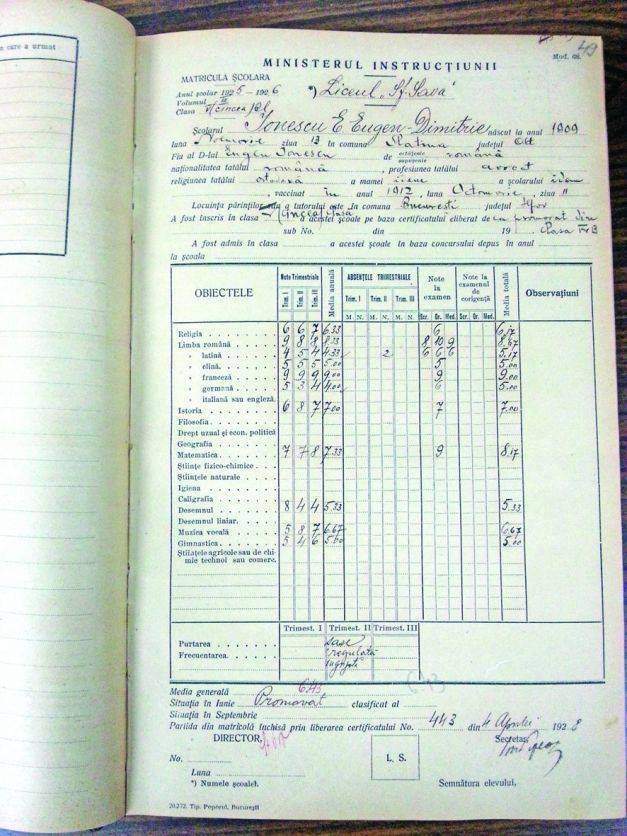 n care a urmat
49
Mod. 68.
MINISTERUL INSTRUCȚIUNII
MATRICULA ȘCOLARA
Anul școlar 1925 - 1926 *) Liceul „Sf. Sava"
Volumul III
Clasa V (cincea)
Școlarul Ionescu E. Eugen-Dimitrie născut la anul 1909
luna Noemvrie ziua 13 în comuna Slatina județul Olt
Fiu al D-lui Eugen Ionescu de cetățenie română
supușenie
naționalitatea tatălui română, profesiunea tatălui avocat
religiunea tatălui ortodoxă a mamei idem a școlarului idem
, vaccinat în anul 1912, luna Octomvrie, ziua 11
Locuința părinților sau a tutorului este în comuna București județul Ilfov
A fost înscris în clasa V-a cincea clasa a acestei școale pe baza certificatului eliberat de ca promovat din
sub No. din 19 clasa IV B
A fost admis în clasa a acestei școale în baza concursului depus în anul
la școala
OBIECTELE Note Trimestriale Media anuală ABSENȚELE TRIMESTRIALE Note la examen Note la examenul de corigență Media totală Observațiuni
Trim. I Trim. II Trim. III Trim. I Trim. II Trim. III
M. N. M. N. M. N. Scr. Or. Med. Scr. Or. Med.
Religia 6 6 7 6.33 6 6,17
Limba română 9 8 8 8.33 8 10 9 8,67
" latină 4 5 4 4.33 2 6 6 6 5.17
" elină 5 5 5 5.00 5 5.00
" franceză 9 9 9 9.00 9 9.00
" germană 5 3 4 4.00 6 5.00
" italiană sau engleză
Istoria 6 8 7 7.00 7 7.00
Filosofia
Drept uzual și econ. politică
Geografia
Matematica 7 7 8 7.33 9 8.17
Științe fizico-chimice
Științele naturale
Igiena
Caligrafia
Desemnul 8 4 4 5.33 5.33
Desemnul liniar
Muzica vocală 5 8 7 6.67 6.67
Gimnastica 5 4 6 5.00 5.00
Științele agricole sau de chi-
mie technol sau comerc.
Trimest. I Trimest. II Trimest. III
Purtarea șase
Frecuentarea regulată
Media generală 6.43 6.43
Situația în Iunie Promovat clasificat al
Situația în Septembre
Partida din matricolă închisă prin liberarea certificatului No. 443 din 4 Aprilie 1928
DIRECTOR, Secretar,
No. L. S.
Luna
*) Numele școalei. Semnătura elevului.
20.272. Tip. Poporul, București